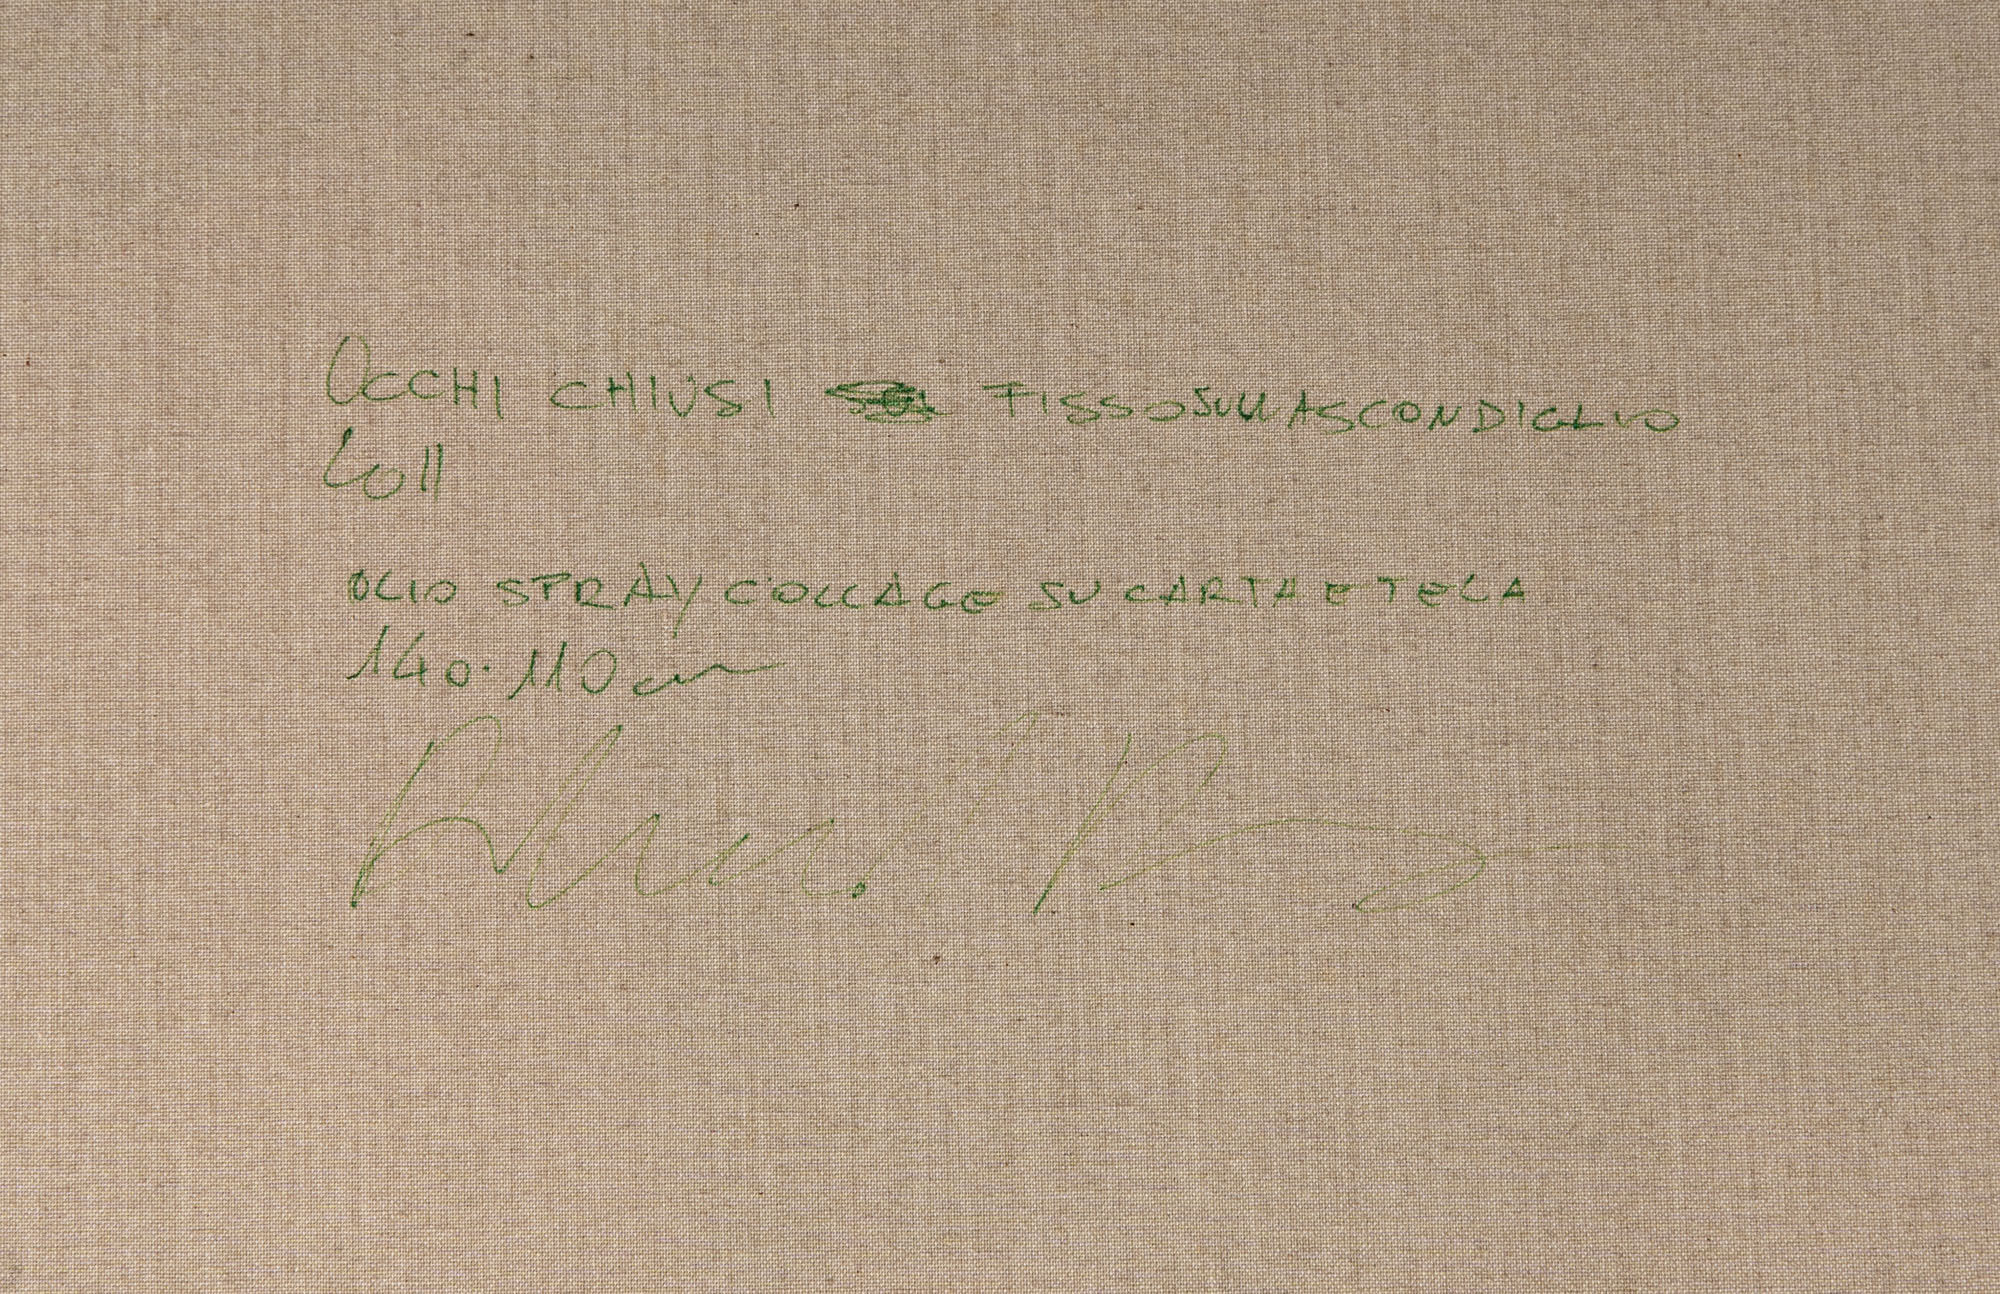 OCCHI CHIUSI FISSO SULL ASCONDIGLIO
2011
OLIO SPRAY COLLAGE SU CARTA E TELA
140·110 cm